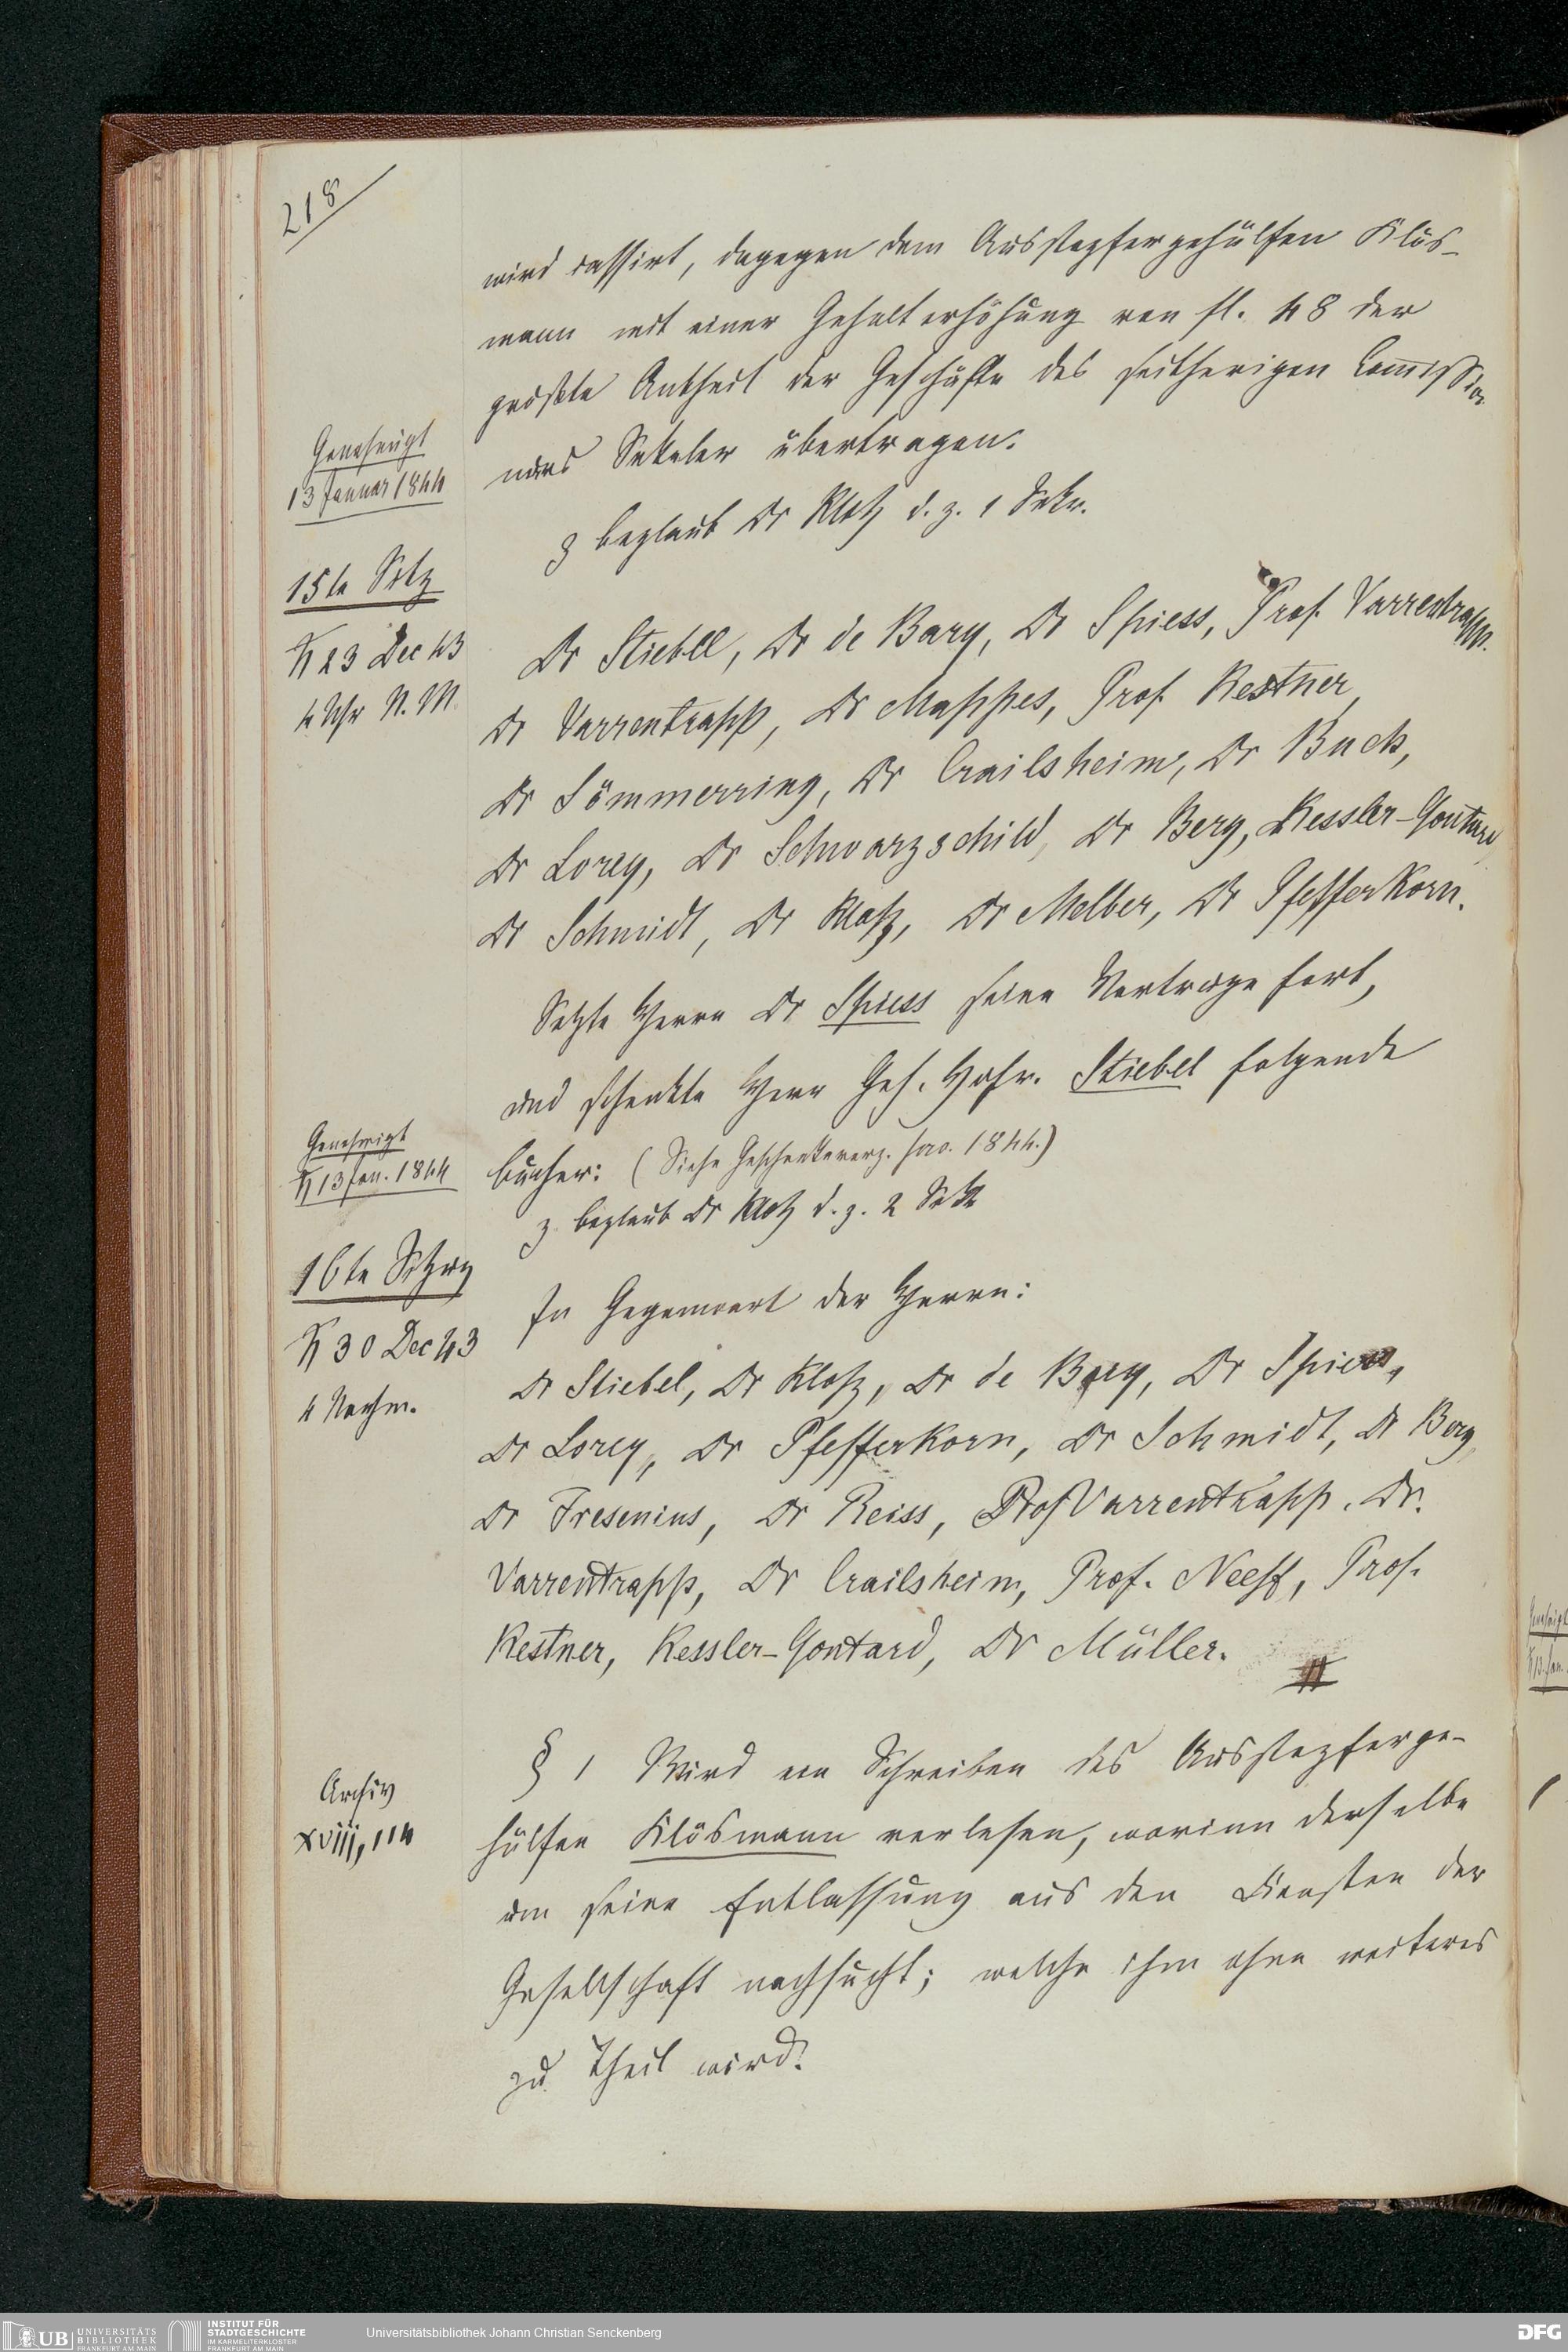 218
wird cassirt, dagegen dem Ausstopfergehülfen Klös-
mann mit einer Gehalterhöhung von fl. 48 der
größte Antheil der Geschäfte des seitherigen Commissio-
närs übertragen.
Genehmigt
13 Januar 1844
z beglaub Dr Klotz d. z. 1 Sekr.
15te Sitz
23 Dec 43
4 Uhr N. M.
Dr Stiebel, Dr de Bary, Dr Spiess, Prof. Varrentrapp.
Dr Varrentrapp, Dr Mappes, Prof. Kestner,
Dr Sömmerring, Dr Crailsheim, Dr Buck,
Dr Lorey, Dr Schwarzschild, Dr Berg, Kessler-Gontard,
Dr Schmidt, Dr Klotz, Dr Melber, Dr Pfefferkorn.
Setzte Herrn Dr Spiess seine Vortrage fort,
und schenkte Herr Geh. Hofr. Stiebel folgende
Bücher: (Siehe Geschenkeverz. pro. 1844.)
Genehmigt
13 Jan. 1844
z. beglaub Dr Klotz d. z. 2 Sekr
16te Sitzung
30 Dec 43
4 Nachm.
In Gegenwart der Herrn:
Dr Stiebel, Dr Klotz, Dr de Bary, Dr Spiess,
Dr Lorey, Dr Pfefferkorn, Dr Schmidt, Dr Berg,
Dr Fresenius, Dr Reiss, Prof Varrentrapp. Dr.
Varrentrapp, Dr Crailsheim, Prof. Neeff, Prof.
Kestner, Kessler-Gontard, Dr Müller.
Archiv
XVIII, 114
§ 1 Wird ein Schreiben des Ausstopferge-
hülfen Klösmann verlesen, worinn derselbe
um seine Entlassung aus den Diensten der
Gesellschaft nachsucht; welche ihm ohne weiteres
zu Theil wird.
UB UNIVERSITÄTS BIBLIOTHEK FRANKFURT AM MAIN
INSTITUT FÜR STADTGESCHICHTE IM KARMELITERKLOSTER FRANKFURT AM MAIN
Universitätsbibliothek Johann Christian Senckenberg
DFG